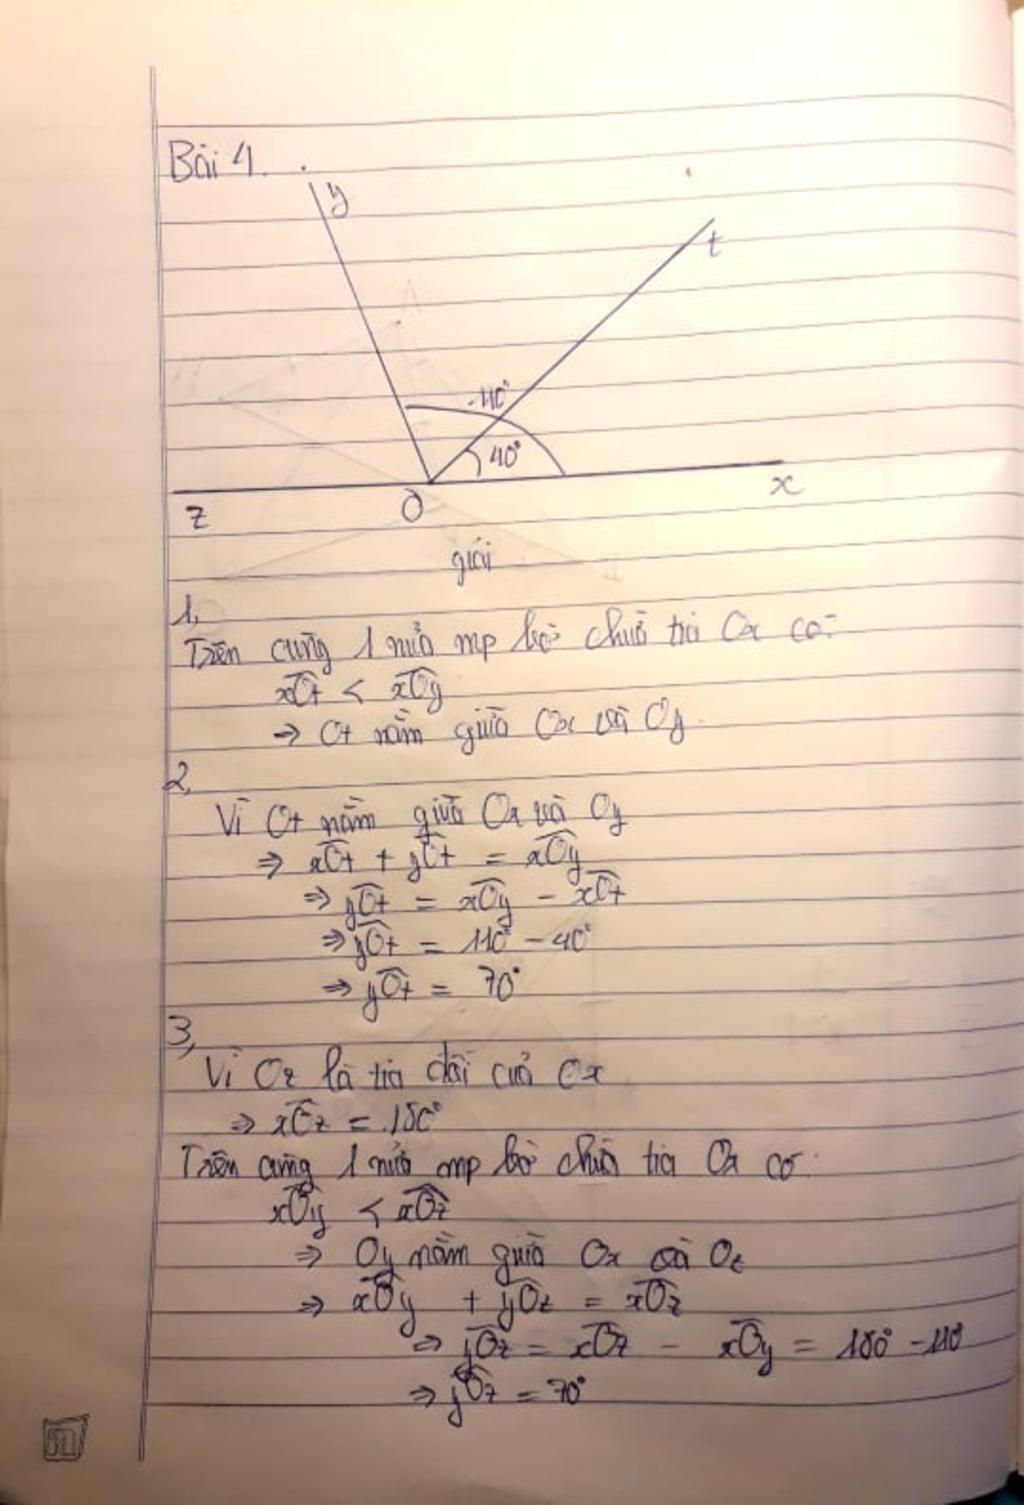 Bài 4.
y
t
110°
40°
z
O
x
giải
1,
Trên cùng 1 nửa mp bờ chứa tia Ox có:
xOt < xOy
⇒ Ot nằm giữa Ox và Oy.
2,
Vì Ot nằm giữa Ox và Oy
⇒ xOt + yOt = xOy
⇒ yOt = xOy - xOt
⇒ yOt = 110° - 40°
⇒ yOt = 70°
3,
Vì Oz là tia đối của Ox
⇒ xOz = 180°
Trên cùng 1 nửa mp bờ chứa tia Ox có:
xOy < xOz
⇒ Oy nằm giữa Ox và Oz
⇒ xOy + yOz = xOz
⇒ yOz = xOz - xOy = 180° - 110°
⇒ yOz = 70°